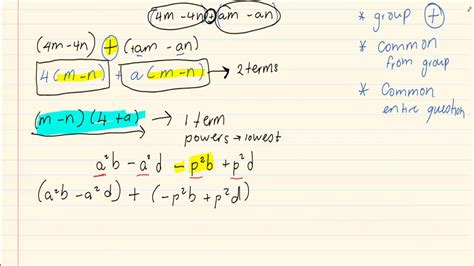 4m - 4n + am - an
(4m - 4n) + (+am - an)
4(m-n) + a(m-n) → 2 terms
(m-n)(4+a) → 1 term
powers → lowest
a²b - a²d - p²b + p²d
(a²b - a²d) + (-p²b + p²d)
* group +
* common
from group
* Common
entire question